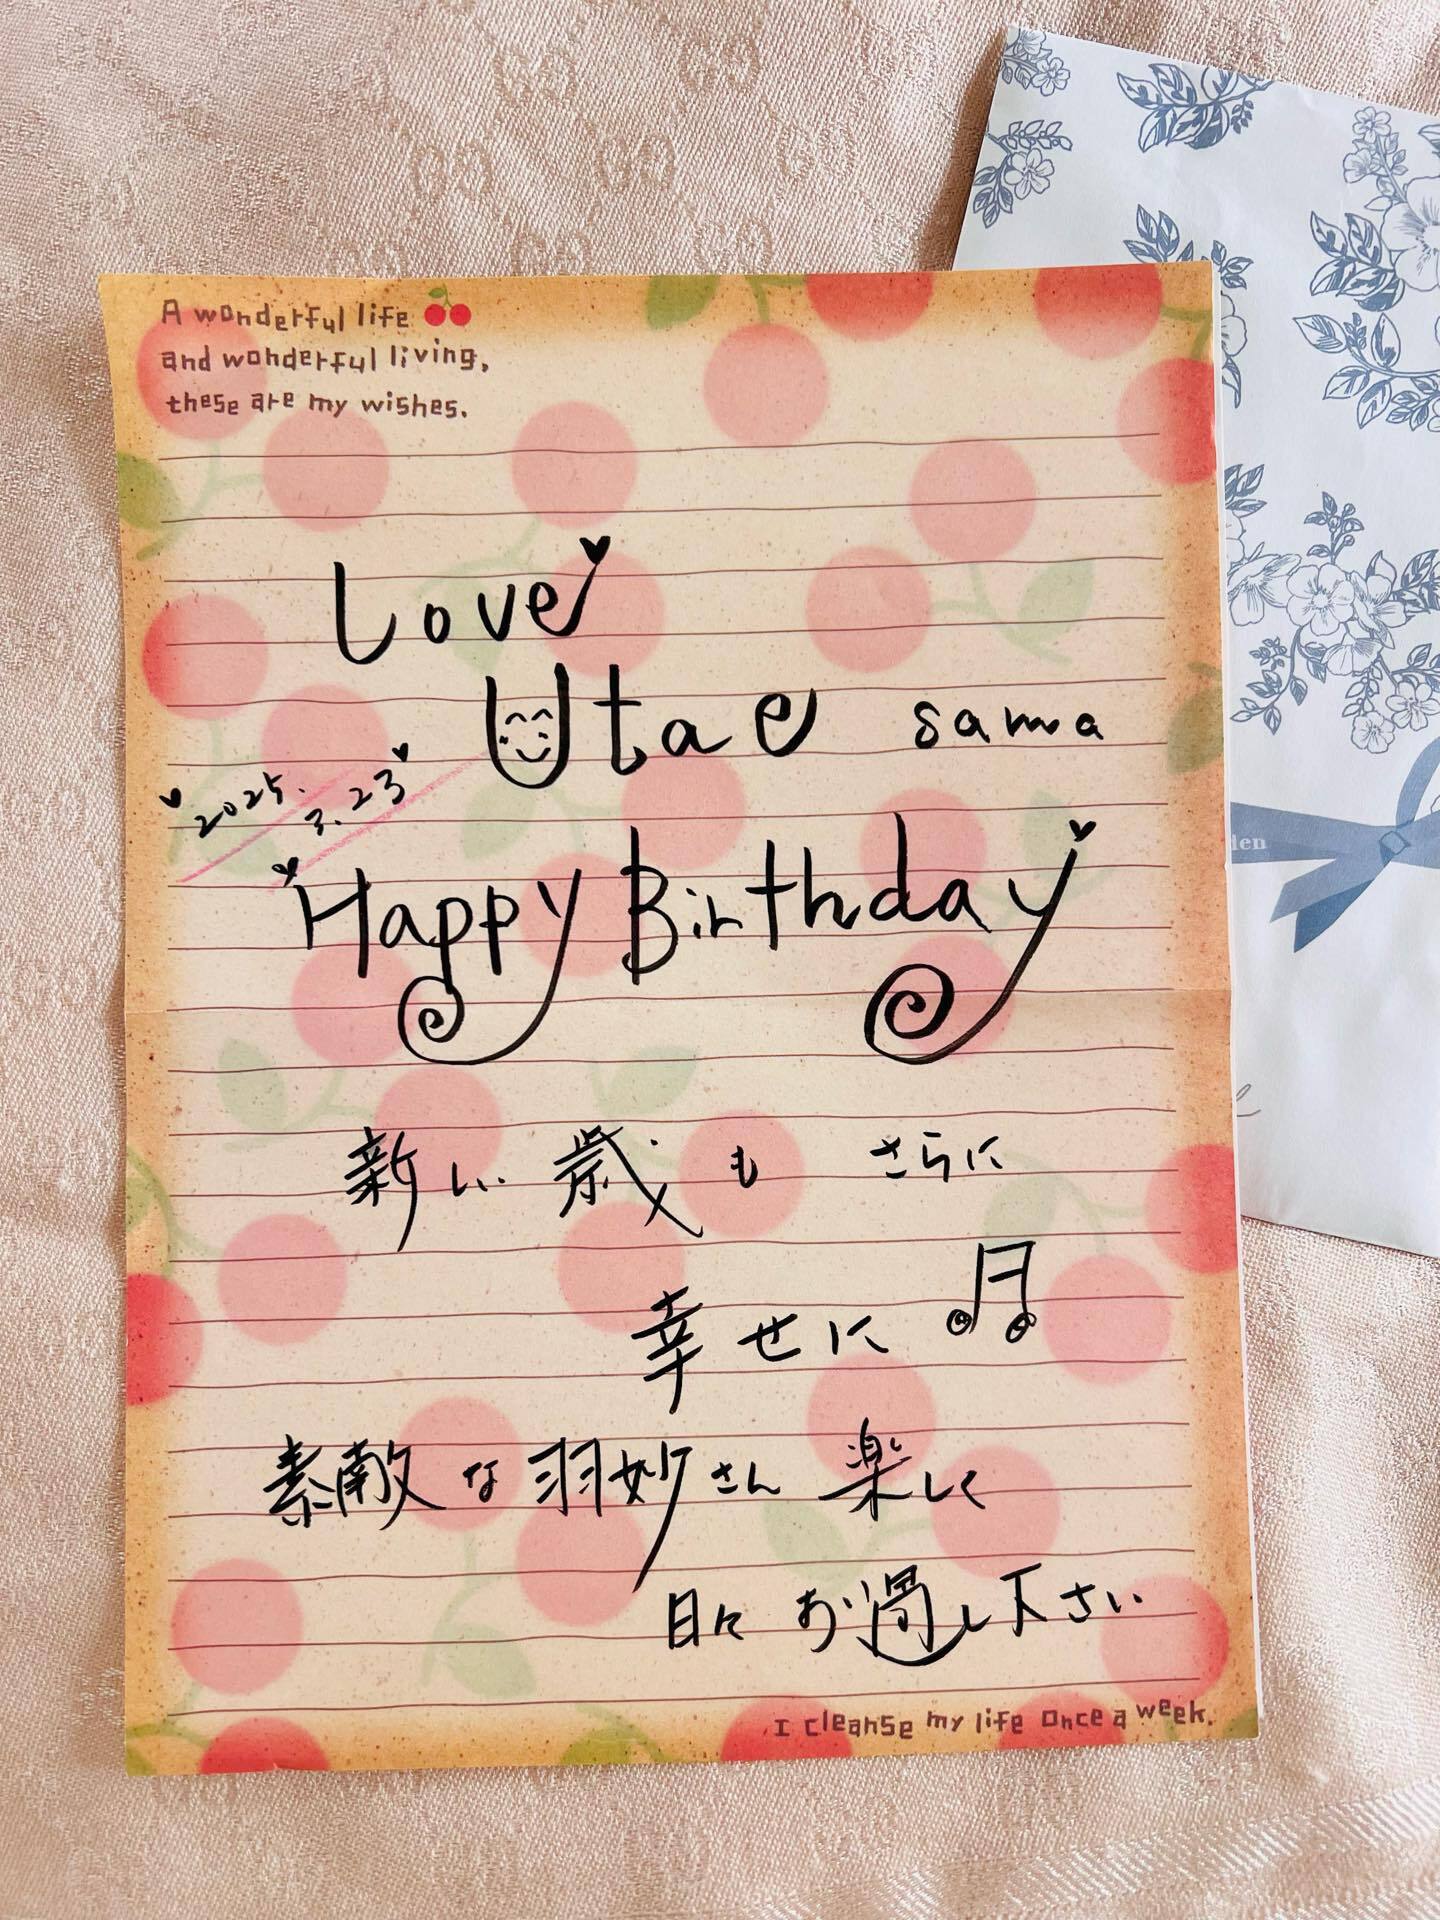 A wonderful life
and wonderful living,
these are my wishes.
Love
Utae sama
2025.
3.23
Happy Birthday
新しい歳も さらに
幸せに
素敵な羽妙さん 楽しく
日々お過し下さい
I cleanse my life once a week.
den